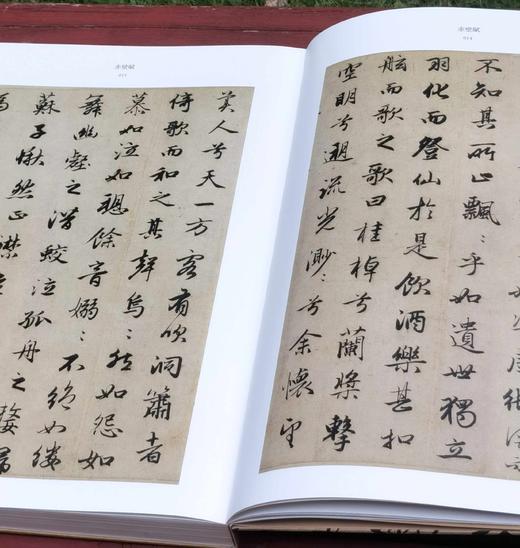 赤壁赋
014
不知其所止飄〻乎如遺世獨立
羽化而登仙於是飲酒樂甚扣
舷而歌之歌曰桂棹兮蘭槳擊
空明兮遡流光渺〻兮余懷望
赤壁赋
美人兮天一方客有吹洞簫者
倚歌而和之其聲烏〻然如怨如
慕如泣如聽餘音嫋〻不絕如縷
舞幽壑之潛蛟泣孤舟之嫠婦
蘇子愀然正襟